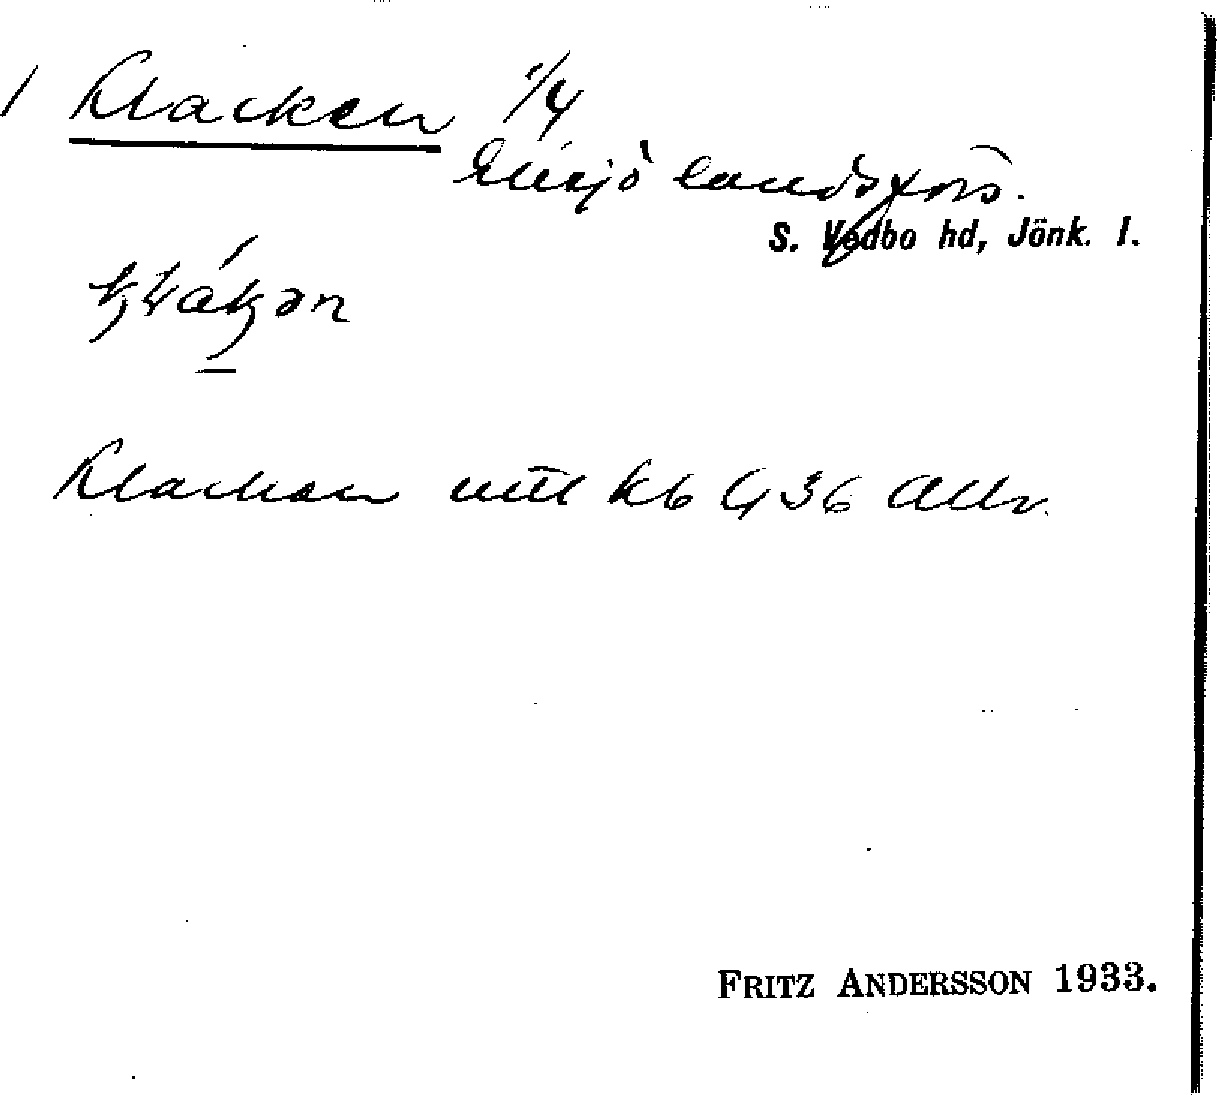 1 Klacken 1/4
Eksjö landsförs.
S. Vedbo hd, Jönk. l.
Klacken uttl kb 6, 36 Allv.
FRITZ ANDERSSON 1933.